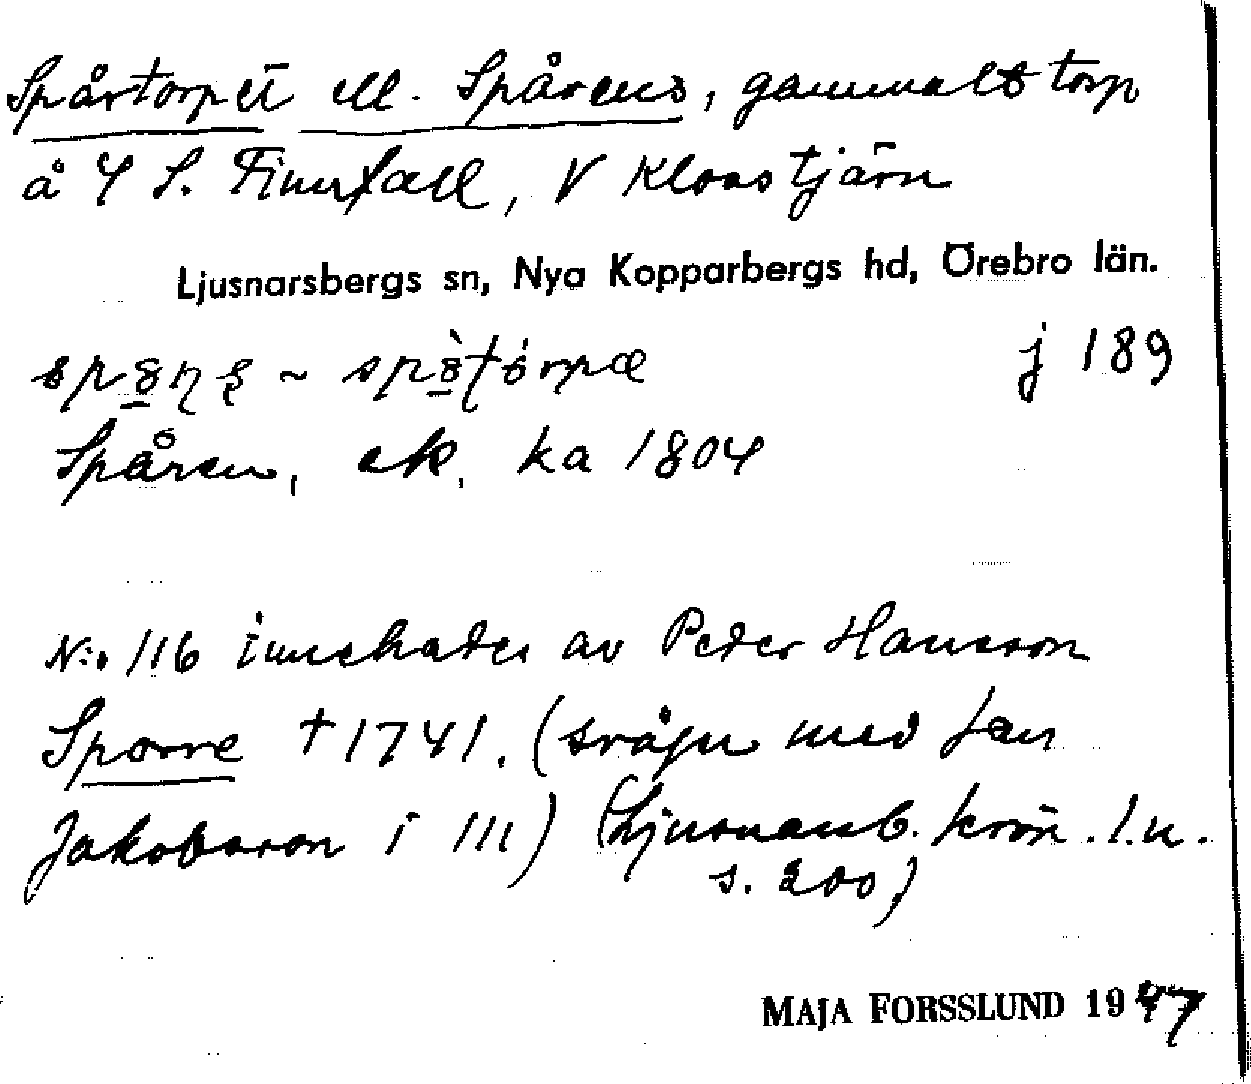 Spårtorpet ell. Spårens, gammalt torp
å 4 S. Finnfall, V Kloastjärn
Ljusnarsbergs sn, Nya Kopparbergs hd, Örebro län.
j 189
Spåren, ek. ka 1804
N:o 116 innehades av Peder Hansson
Sporre † 1741. (svåger med Jan
Jakobsson i 111) (Ljusnarsb. krön. l.u.
s. 200)
MAJA FORSSLUND 1947